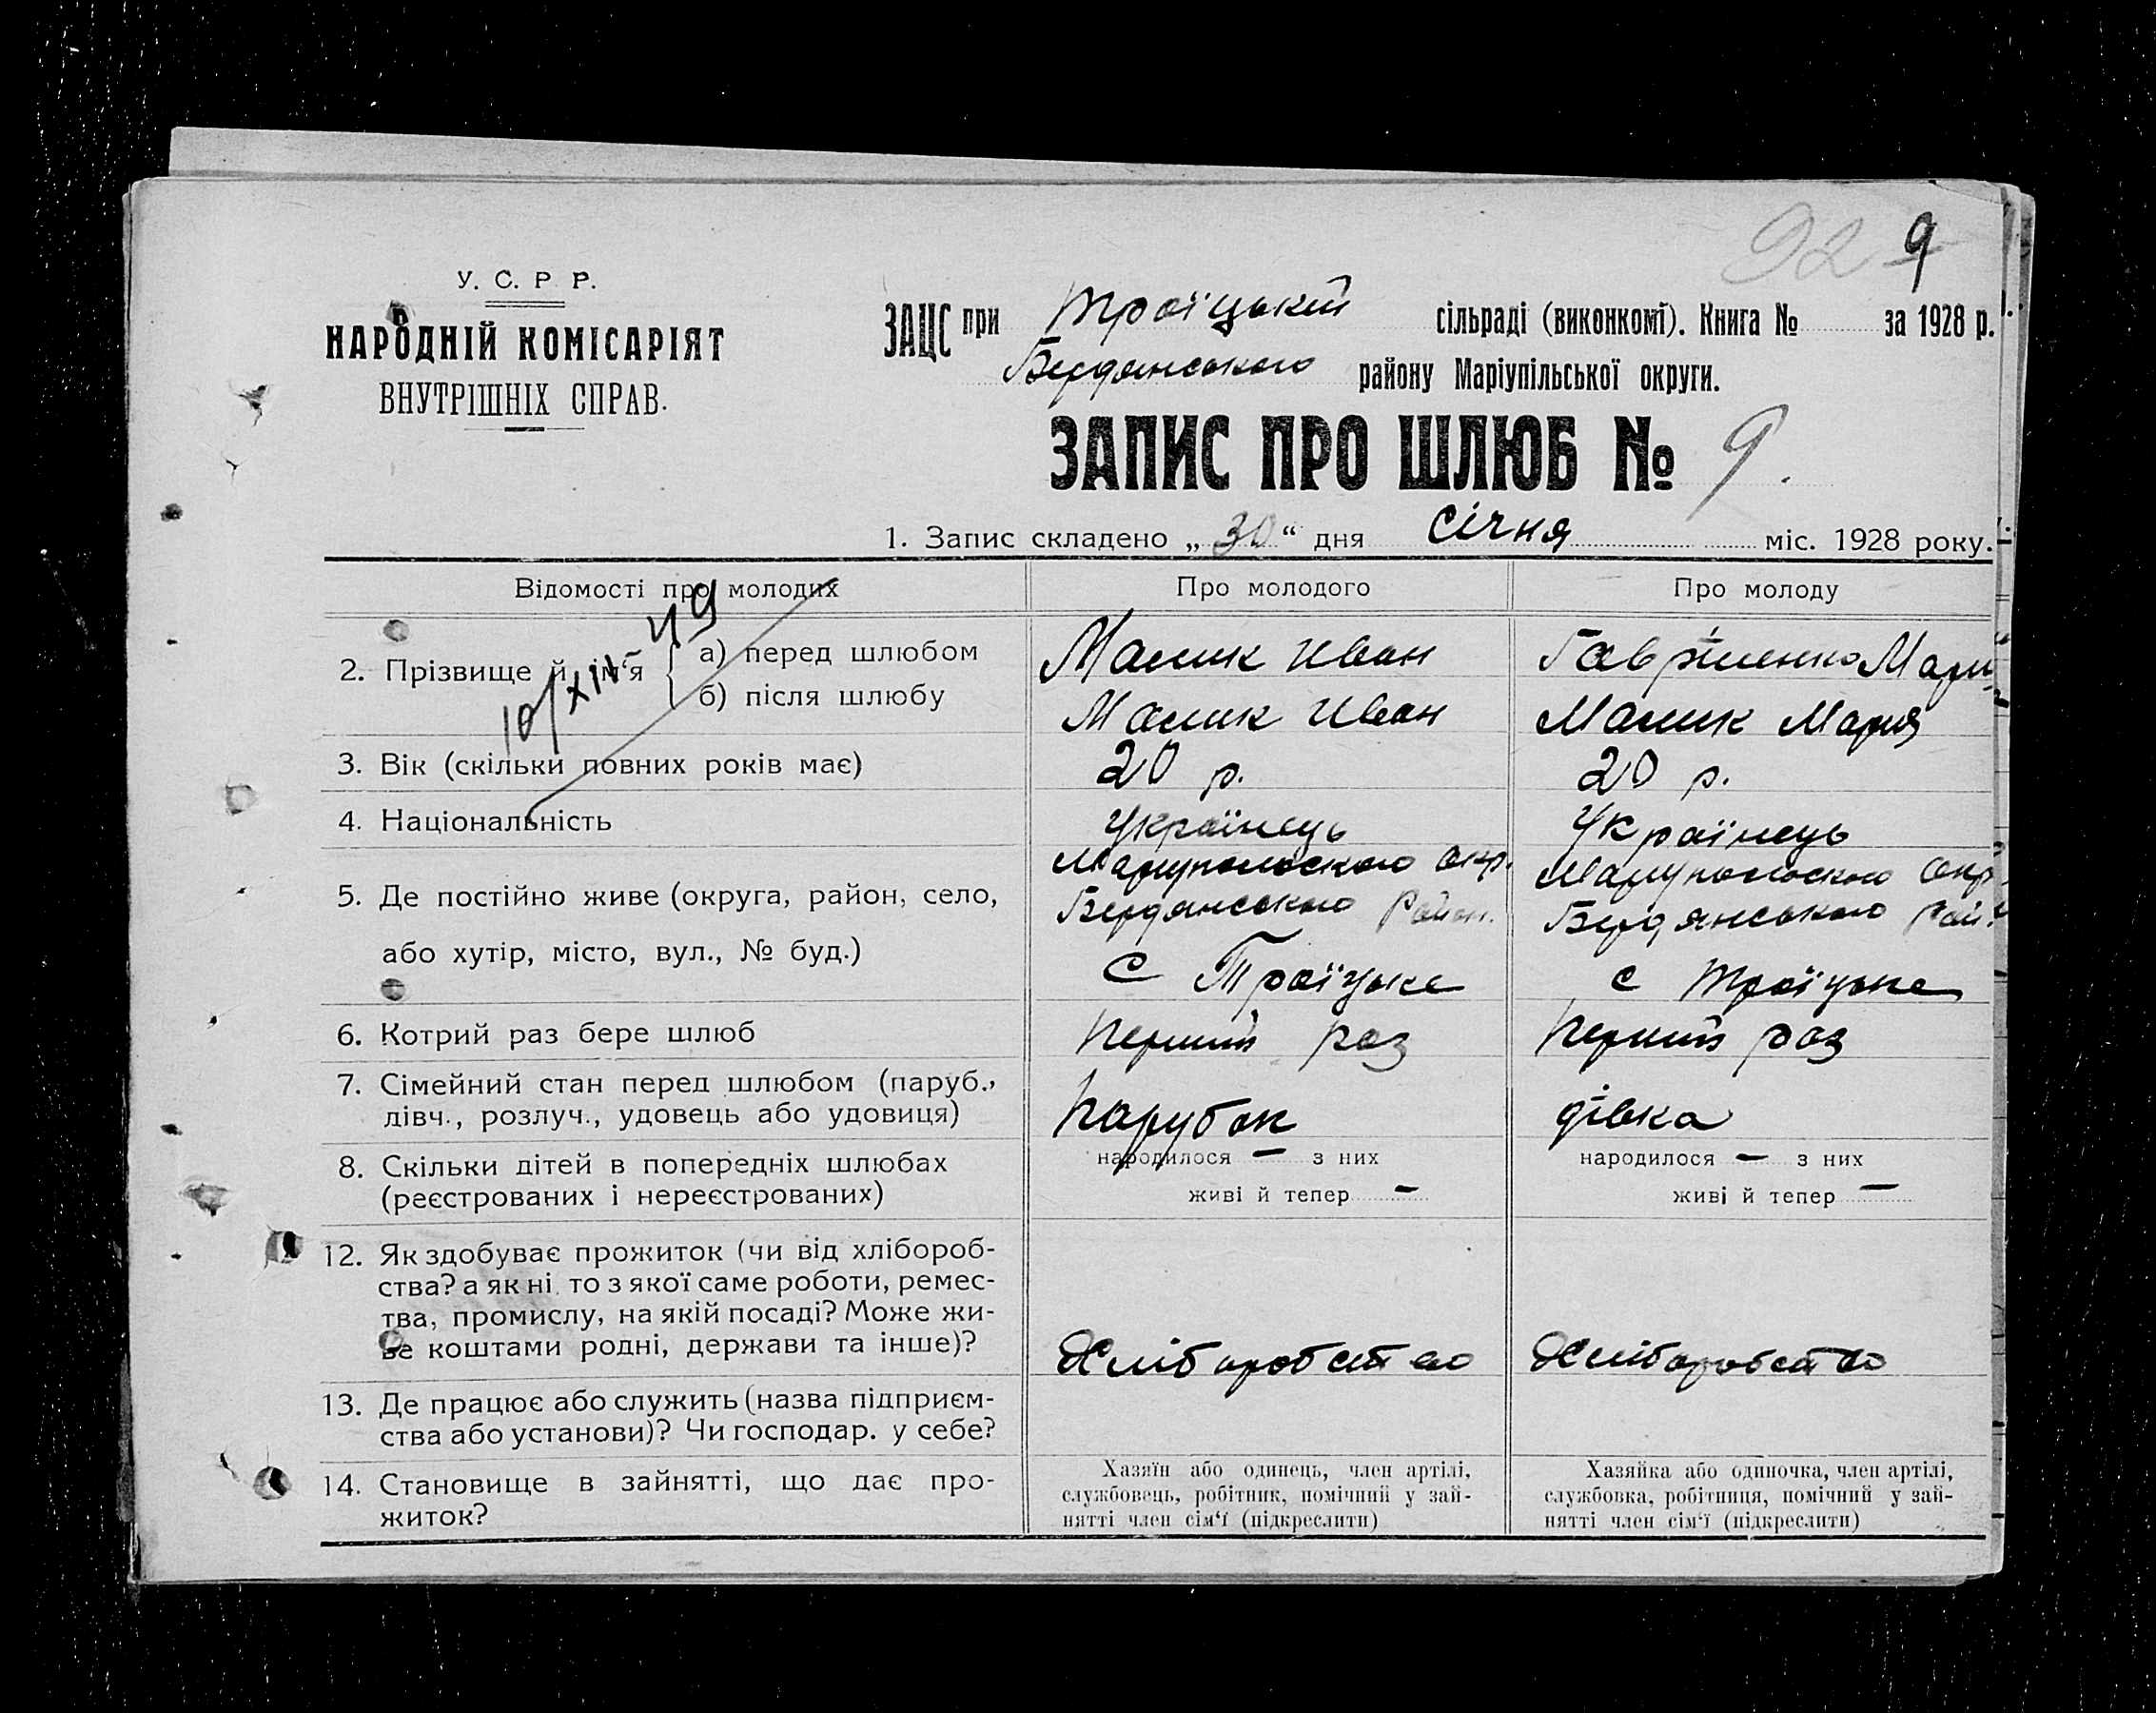 92 9
У. С. Р. Р.
НАРОДНІЙ КОМІСАРІЯТ
ВНУТРІШНІХ СПРАВ.
ЗАЦС при Троїцькій сільраді (виконкомі). Книга № за 1928 р.
Бердянського району Маріупільської округи.
ЗАПИС ПРО ШЛЮБ № 9.
1. Запис складено „30“ дня Січня міс. 1928 року.
Відомості про молодих
Про молодого
Про молоду
10/XII-49
2. Прізвище й ім‘я
а) перед шлюбом
Малик Иван
Гаврішенко Мари
б) після шлюбу
Малик Иван
Малик Мария
3. Вік (скільки повних років має)
20 р.
20 р.
4. Національність
Українець
Українець
5. Де постійно живе (округа, район, село,
або хутір, місто, вул., № буд.)
Мариупольського окр.
Бердянського Район.
с Троїцьке
Мариупольського окр.
Бердянського Рай.
с Троїцьке
6. Котрий раз бере шлюб
Перший раз
Перший раз
7. Сімейний стан перед шлюбом (паруб.,
дівч., розлуч., удовець або удовиця)
Парубок
дівка
8. Скільки дітей в попередніх шлюбах
(реєстрованих і нереєстрованих)
народилося — з них
живі й тепер —
народилося — з них
живі й тепер —
12. Як здобуває прожиток (чи від хлібороб-
ства? а як ні, то з якої саме роботи, ремес-
тва, промислу, на якій посаді? Може жи-
ве коштами родні, держави та інше)?
Хліборобство
Хліборобство
13. Де працює або служить (назва підприєм-
ства або установи)? Чи господар. у себе?
14. Становище в зайнятті, що дає про-
житок?
Хазяїн або одинець, член артілі,
службовець, робітник, помічний у зай-
нятті член сім‘ї (підкреслити)
Хазяйка або одиночка, член артілі,
службовка, робітниця, помічний у зай-
нятті член сім‘ї (підкреслити)